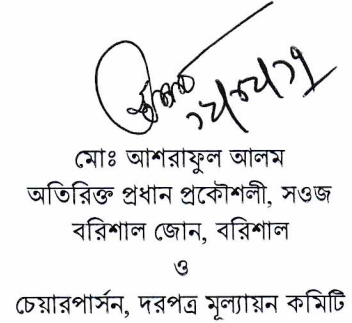 মোঃ আশরাফুল আলম
অতিরিক্ত প্রধান প্রকৌশলী, সওজ
বরিশাল জোন, বরিশাল
ও
চেয়ারপার্সন, দরপত্র মূল্যায়ন কমিটি